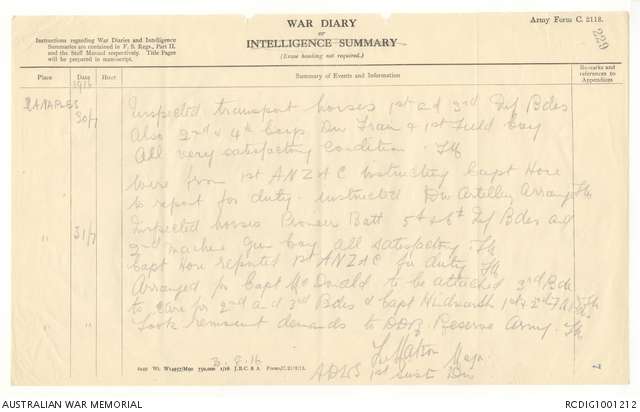 WAR DIARY
or
INTELLIGENCE SUMMARY
(Erase heading not required.)
Army Form C. 2118.
229
Instructions regarding War Diaries and Intelligence
Summaries are contained in F. S. Regs., Part II.
and the Staff Manual respectively. Title Pages
will be prepared in manuscript.
Place Date Hour Summary of Events and Information Remarks and references to Appendices
1916
CANAPLES 30/7 Inspected transport horses 1st and 3rd Inf Bdes
Also 2nd & 4th Coys Div Train & 1st Field Coy
All very satisfactory condition.
Wire from 1st ANZAC instructing Capt Hore
to report for duty. instructed Div Artillery
" 31/7 Inspected horses Pioneer Batt 5th & 6th Inf Bdes and
2nd machine Gun Coy all satisfactory.
Capt Hore reported 1st ANZAC for duty
Arranged for Capt McDonald to be attached 3rd Bde
to care for 2nd and 3rd Bdes & Capt 1st & 2nd
" Took remount demands to DDR Reserve Army.
Major
3.8.16
ADVS 1st Aust Div
7
2449 Wt. W14957/M90 750,000 1/16 J.B.C. & A. Forms/C.2118/12.
AUSTRALIAN WAR MEMORIAL
RCDIG1001212